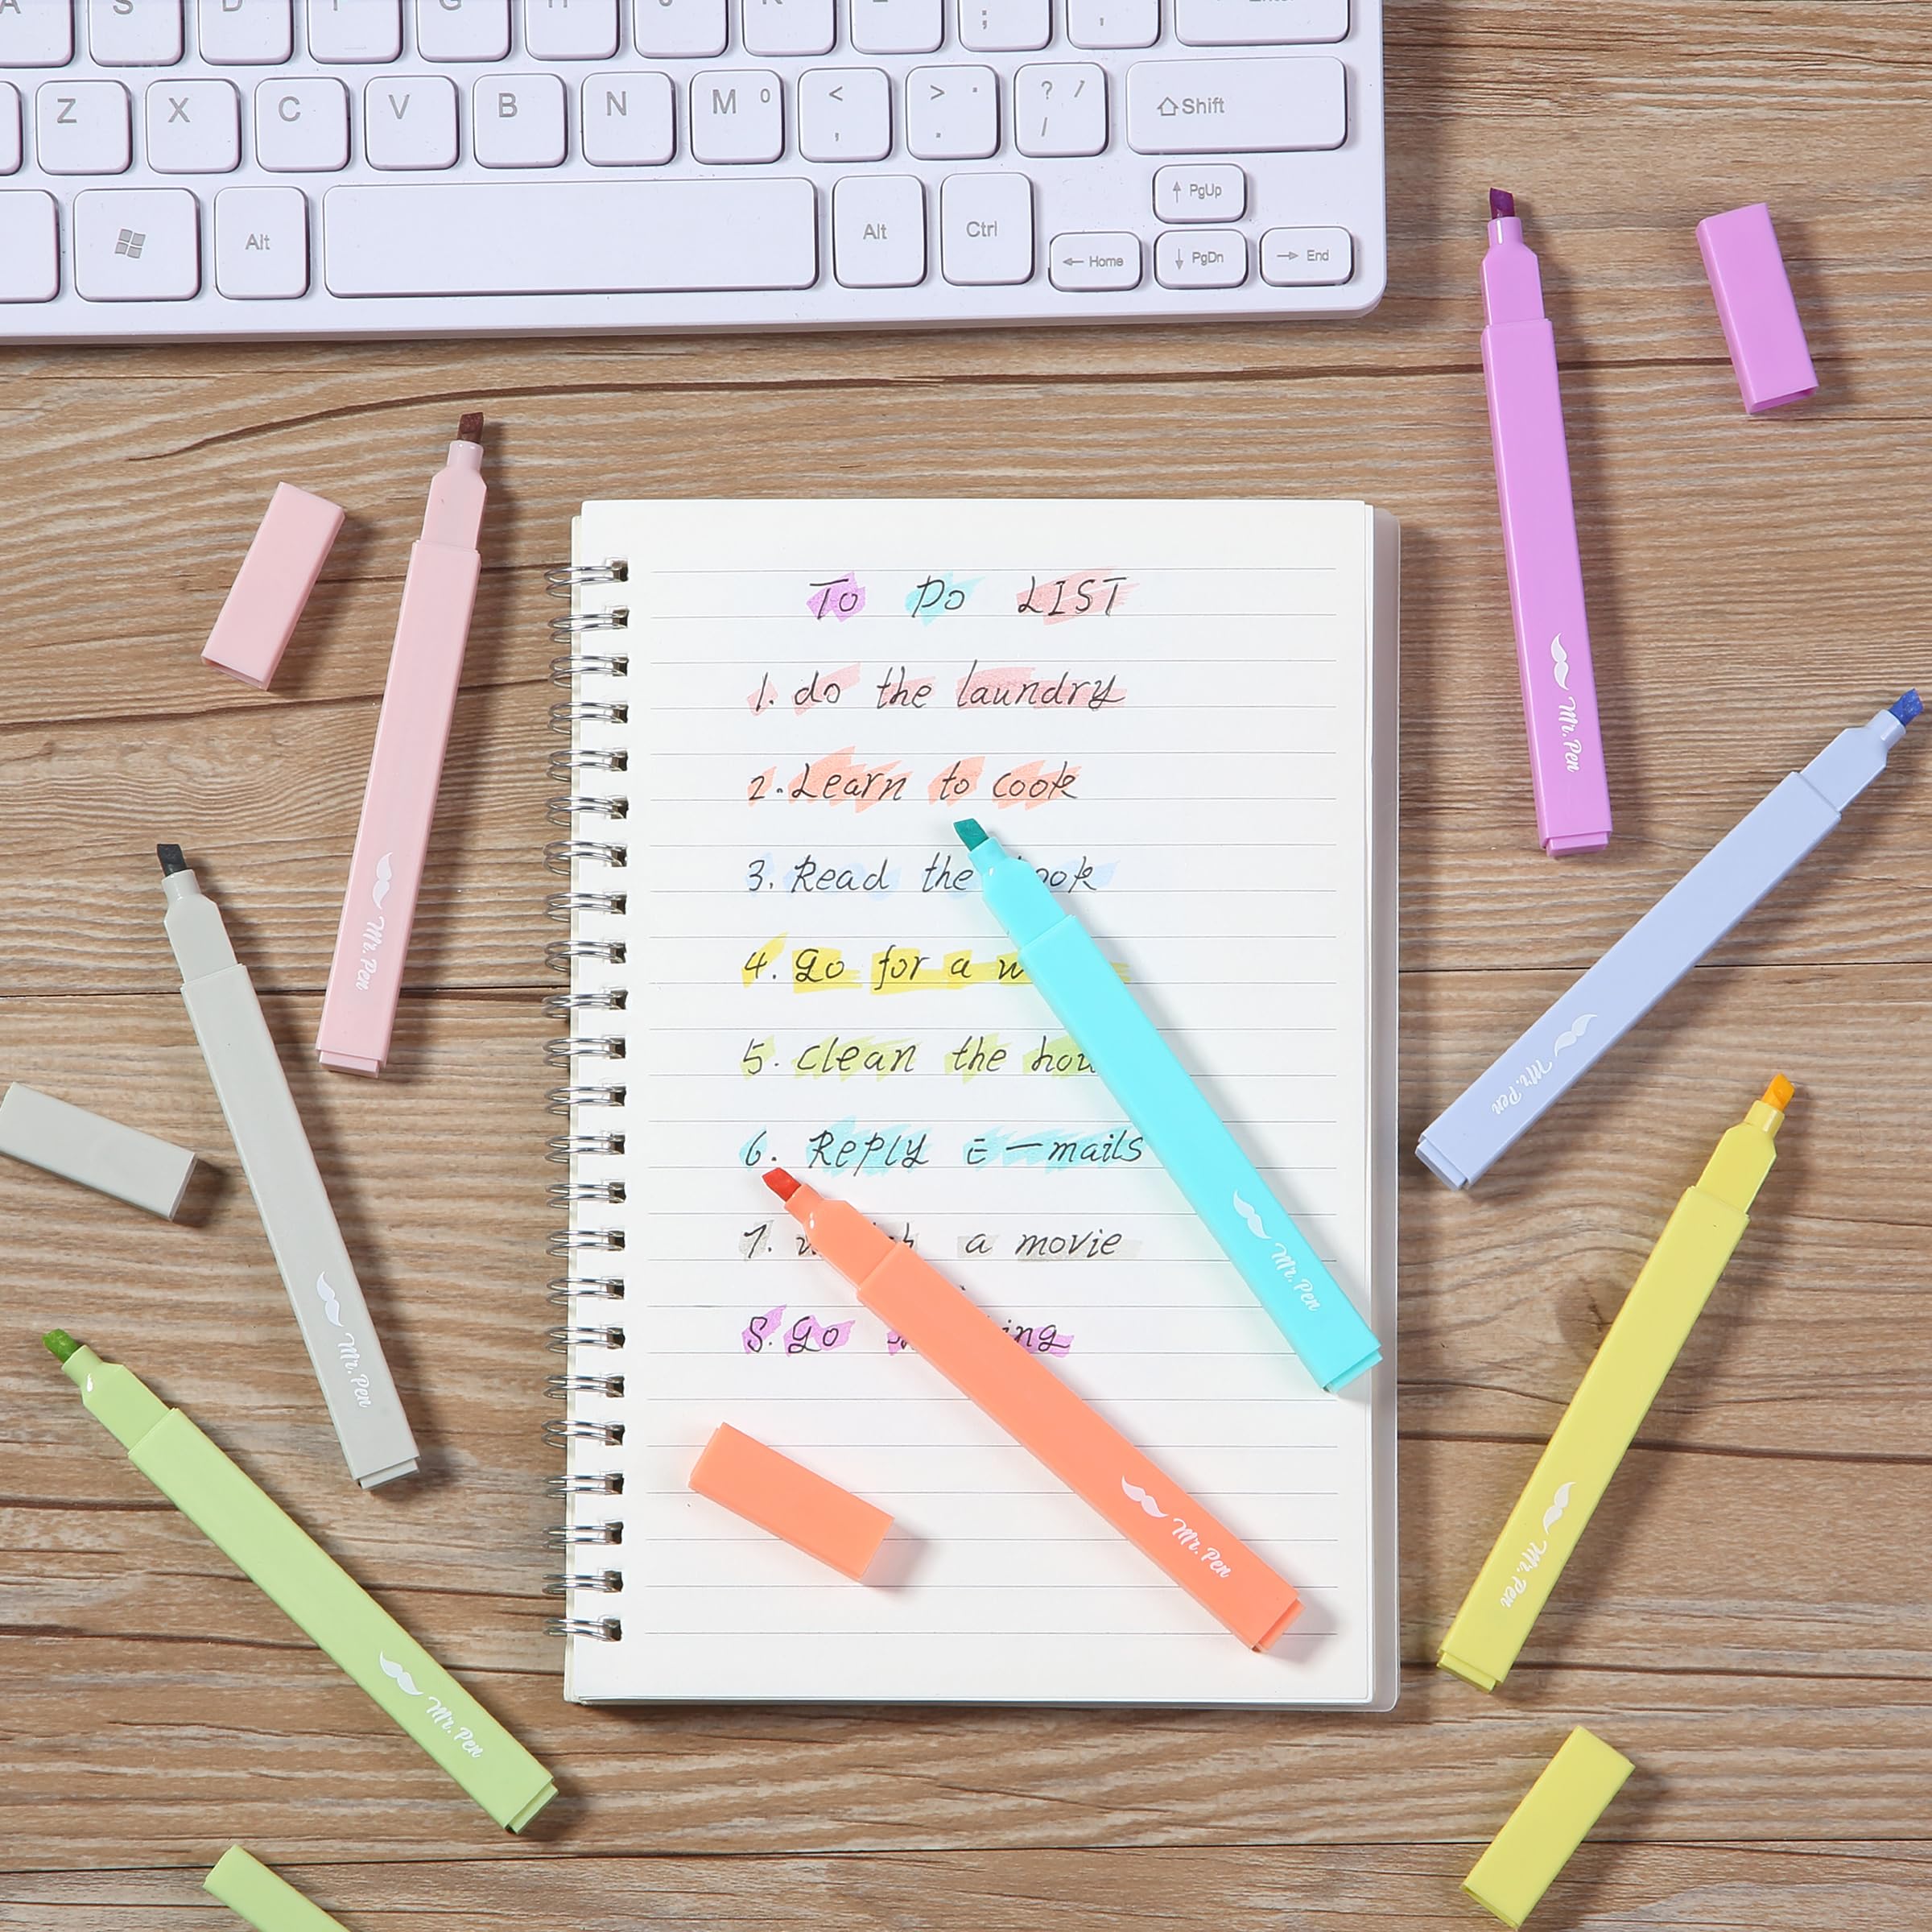 A S D F G H J K L : ; " ' Enter
Z X C V B N M 0 < , > . ? / / Shift
Alt Alt Ctrl
PgUp
Home PgDn End
TO DO LIST
1. do the laundry
2. Learn to cook
3. Read the
4. go for a
5. clean the
6. REPLY E-mails
7. a movie
8. go
Mr. Pen
Mr. Pen
Mr. Pen
Mr. Pen
Mr. Pen
Mr. Pen
Mr. Pen
Mr. Pen